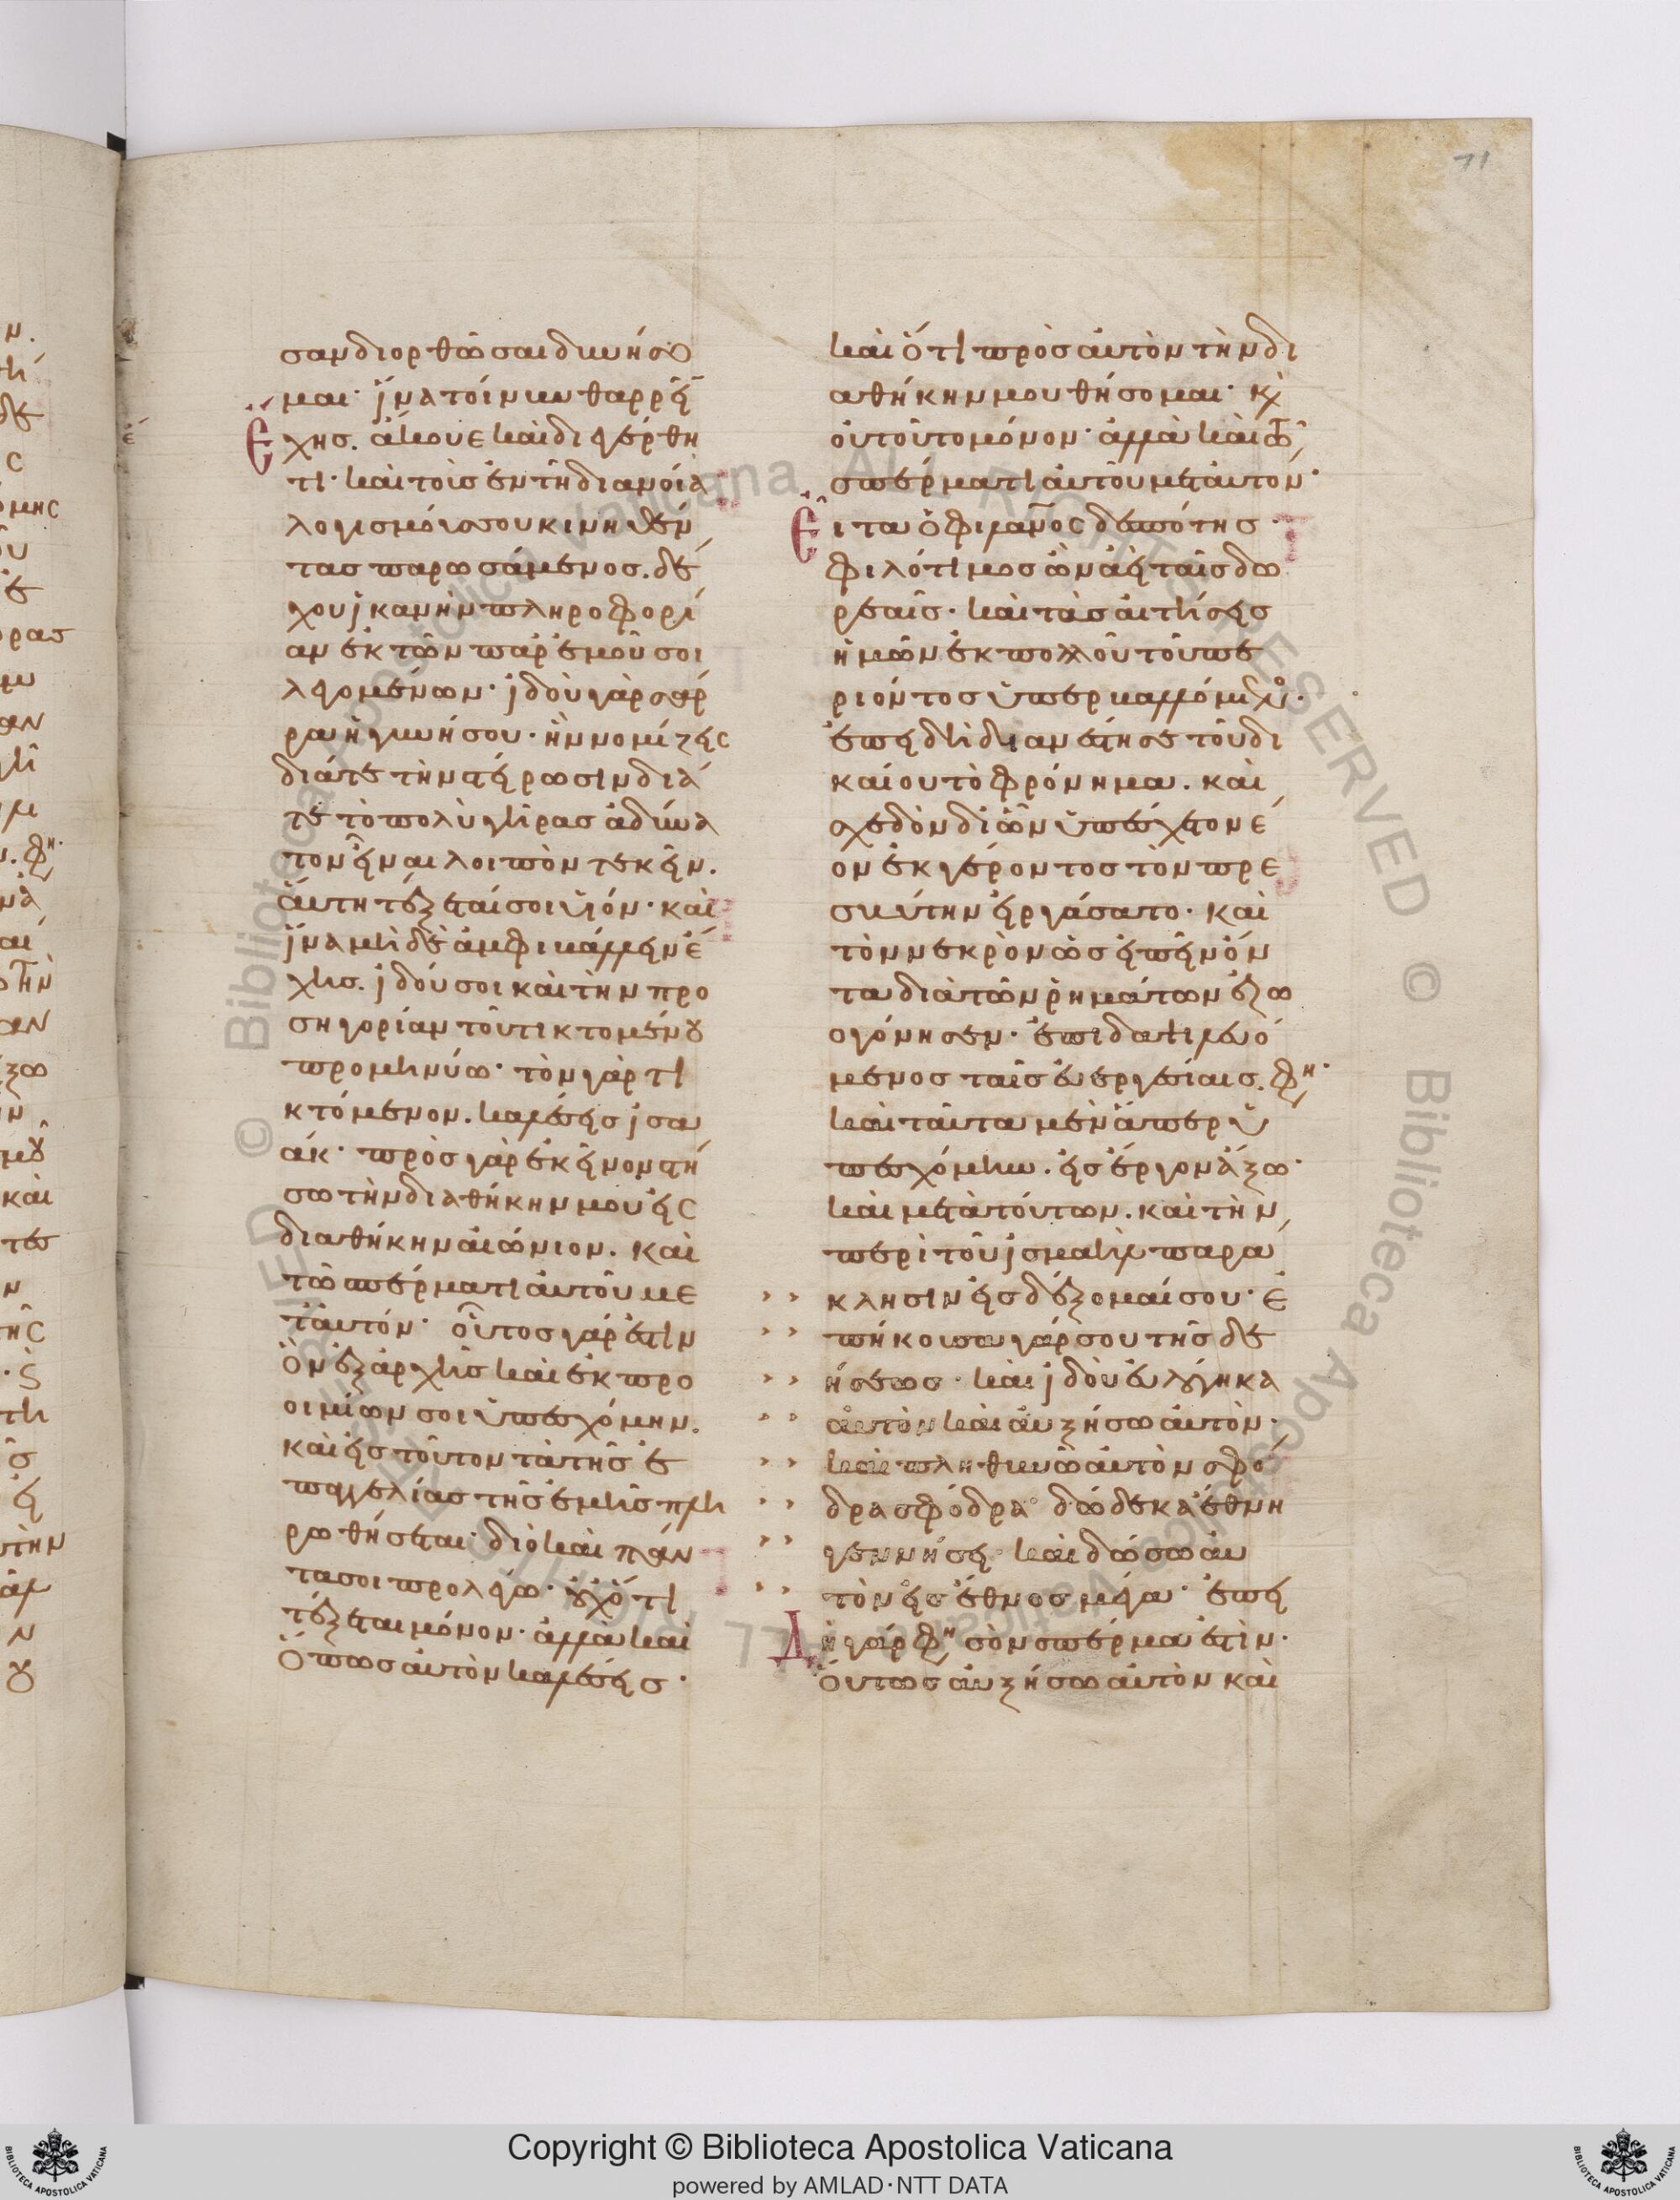 71
σαν διορθῶσαι δυνήσο
μαι· ἵνα τοίνυν θαρρεῖν
ἔχης. ἄκουε καὶ διηγέρθη
τι· καὶ τοῖς ἐν τῆ διανοία
λογισμοίσ σου κινηθέν
τας παρωσάμενος. δέ
χου ἱκανὴν πληροφορί
αν ἐκ τῶν παρ' ἐμοῦ σοι
λεγομένων· ἰδοὺ γὰρ σάρ
ρα ἡ γυνή σου· ἣν νομίζεις
διά τε τὴν στείρωσιν διά
τε τὸ πολὺ γῆρας ἀδύνα
τον εἶναι λοιπὸν τεκεῖν.
αὕτη τέξεταί σοι υἱόν· καὶ
ἵνα μὴ δὲ ἀμφιβάλλειν ἔ
χης. ἰδού σοι καὶ τὴν προ
σηγορίαν τοῦ τικτομένου
προμηνύω· τὸν γὰρ τι
κτόμενον. καλέσεις ἰσα
άκ· πρὸς γὰρ ἐκεῖνον στή
σω τὴν διαθήκην μου εἰς
διαθήκην αἰώνιον. καὶ
τῶ σπέρματι αὐτοῦ με
τ' αὐτόν· οὗτος γάρ ἐστιν
ὃν ἐξ ἀρχῆς καὶ ἐκ προ
οιμίων σοι ὑπεσχόμην.
καὶ εἰς τοῦτον τὰ τῆς ἐ
παγγελίας τῆς ἐμῆς πλη
ρωθήσεται· διὸ καὶ πάν
τα σοι προλέγω· οὐχ ὅτι
τέξεται μόνον· ἀλλὰ καὶ
ὅπως αὐτὸν καλέσεις·
καὶ ὅτι πρὸς αὐτὸν τὴν δι
αθήκην μου θήσομαι· κὶ
οὐ τοῦτο μόνον· ἀλλὰ καὶ τῶ
σπέρματι αὐτοῦ μετ' αὐτον·
Εἶτα ὁ φιλανος δεσπότης
φιλότιμος ὢν ἀεὶ ταῖς δω
ρεαῖς· καὶ τὰς αἰτήσεις
ἡμῶν ἐκ πολλοῦ τοῦ πε
ριόντος ὑπερβαλλόμενος·
ἐπειδὴ διανέστησε τοῦ δι
καίου τὸ φρόνημα. καὶ
σχεδὸν δι' ὧν ὑπέσχετο νέ
ον ἐκ γέροντος τὸν πρε
σβύτην εἰργάσατο. καὶ
τὸν νεκρὸν ὡς εἰπεῖν ὄν
τα διὰ τῶν ῥημάτων ἐζω
ογόνησεν· ἐπιδαψιλευό
μενος ταῖς εὐεργεσίαις. φη·
καὶ ταῦτα μὲν ἅπερ ὑ
πεσχόμην. εἰς ἔργον ἄξω·
καὶ μετὰ τούτων. καὶ τὴν
περὶ τοῦ ἰσμαὴλ παρά
κλησιν εἰσδέξομαί σου· ἐ
πήκουσα γάρ σου τῆς δε
ήσεως· καὶ ἰδοὺ εὐλόγηκα
αὐτὸν καὶ αὐξήσω αὐτὸν·
καὶ πληθυνῶ αὐτὸν σφό
δρα σφόδρα· δώδεκα ἔθνη
γεννήσει· καὶ δώσω αὐ
τὸν εἰς ἔθνος μέγα· ἐπει
Δὴ γάρ φη σὸν σπέρμα ἐστὶν·
οὕτως αὐξήσω αὐτὸν καὶ
Copyright © Biblioteca Apostolica Vaticana
powered by AMLAD·NTT DATA